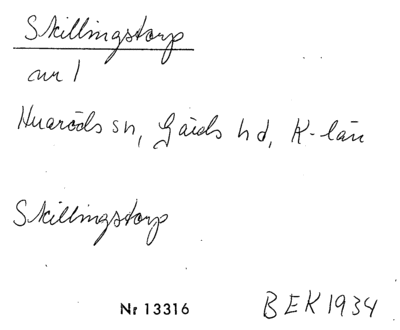 Skillingstorp
nr 1
Huaröds sn, Gärds hd, K-län
Skillingstorp
Nr 13316 BEK 1934